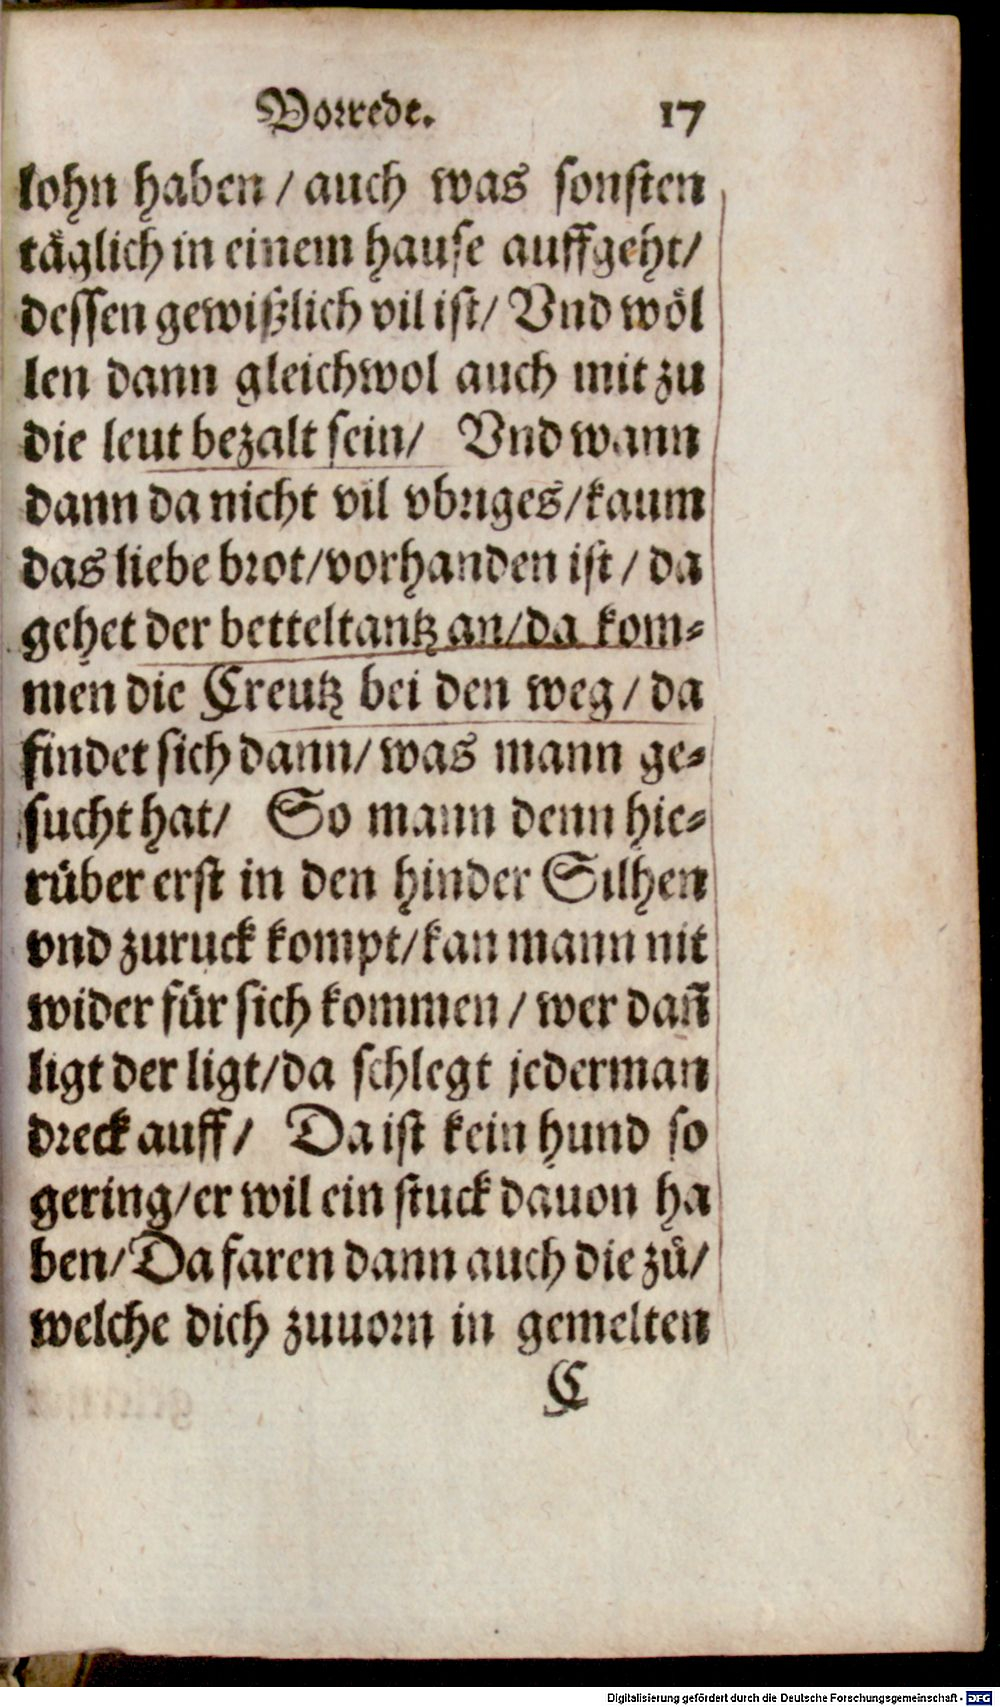 Vorrede. 17
lohn haben / auch was sonsten
täglich in einem hause auffgeht/
dessen gewißlich vil ist/ Vnd wöl
len dann gleichwol auch mit zu
die leut bezalt sein/ Vnd wann
dann da nicht vil vbriges/kaum
das liebe brot/vorhanden ist / da
gehet der betteltantz an/da kom-
men die Creutz bei den weg / da
findet sich dann/was mann ge-
sucht hat/ So mann denn hie-
rüber erst in den hinder Silhen
vnd zuruck kompt/kan mann nit
wider für sich kommen / wer dañ
ligt der ligt/da schlegt jederman
dreck auff/ Da ist kein hund so
gering/er wil ein stuck dauon ha
ben/Da faren dann auch die zů/
welche dich zuuorn in gemelten
C
Digitalisierung gefördert durch die Deutsche Forschungsgemeinschaft - DFG